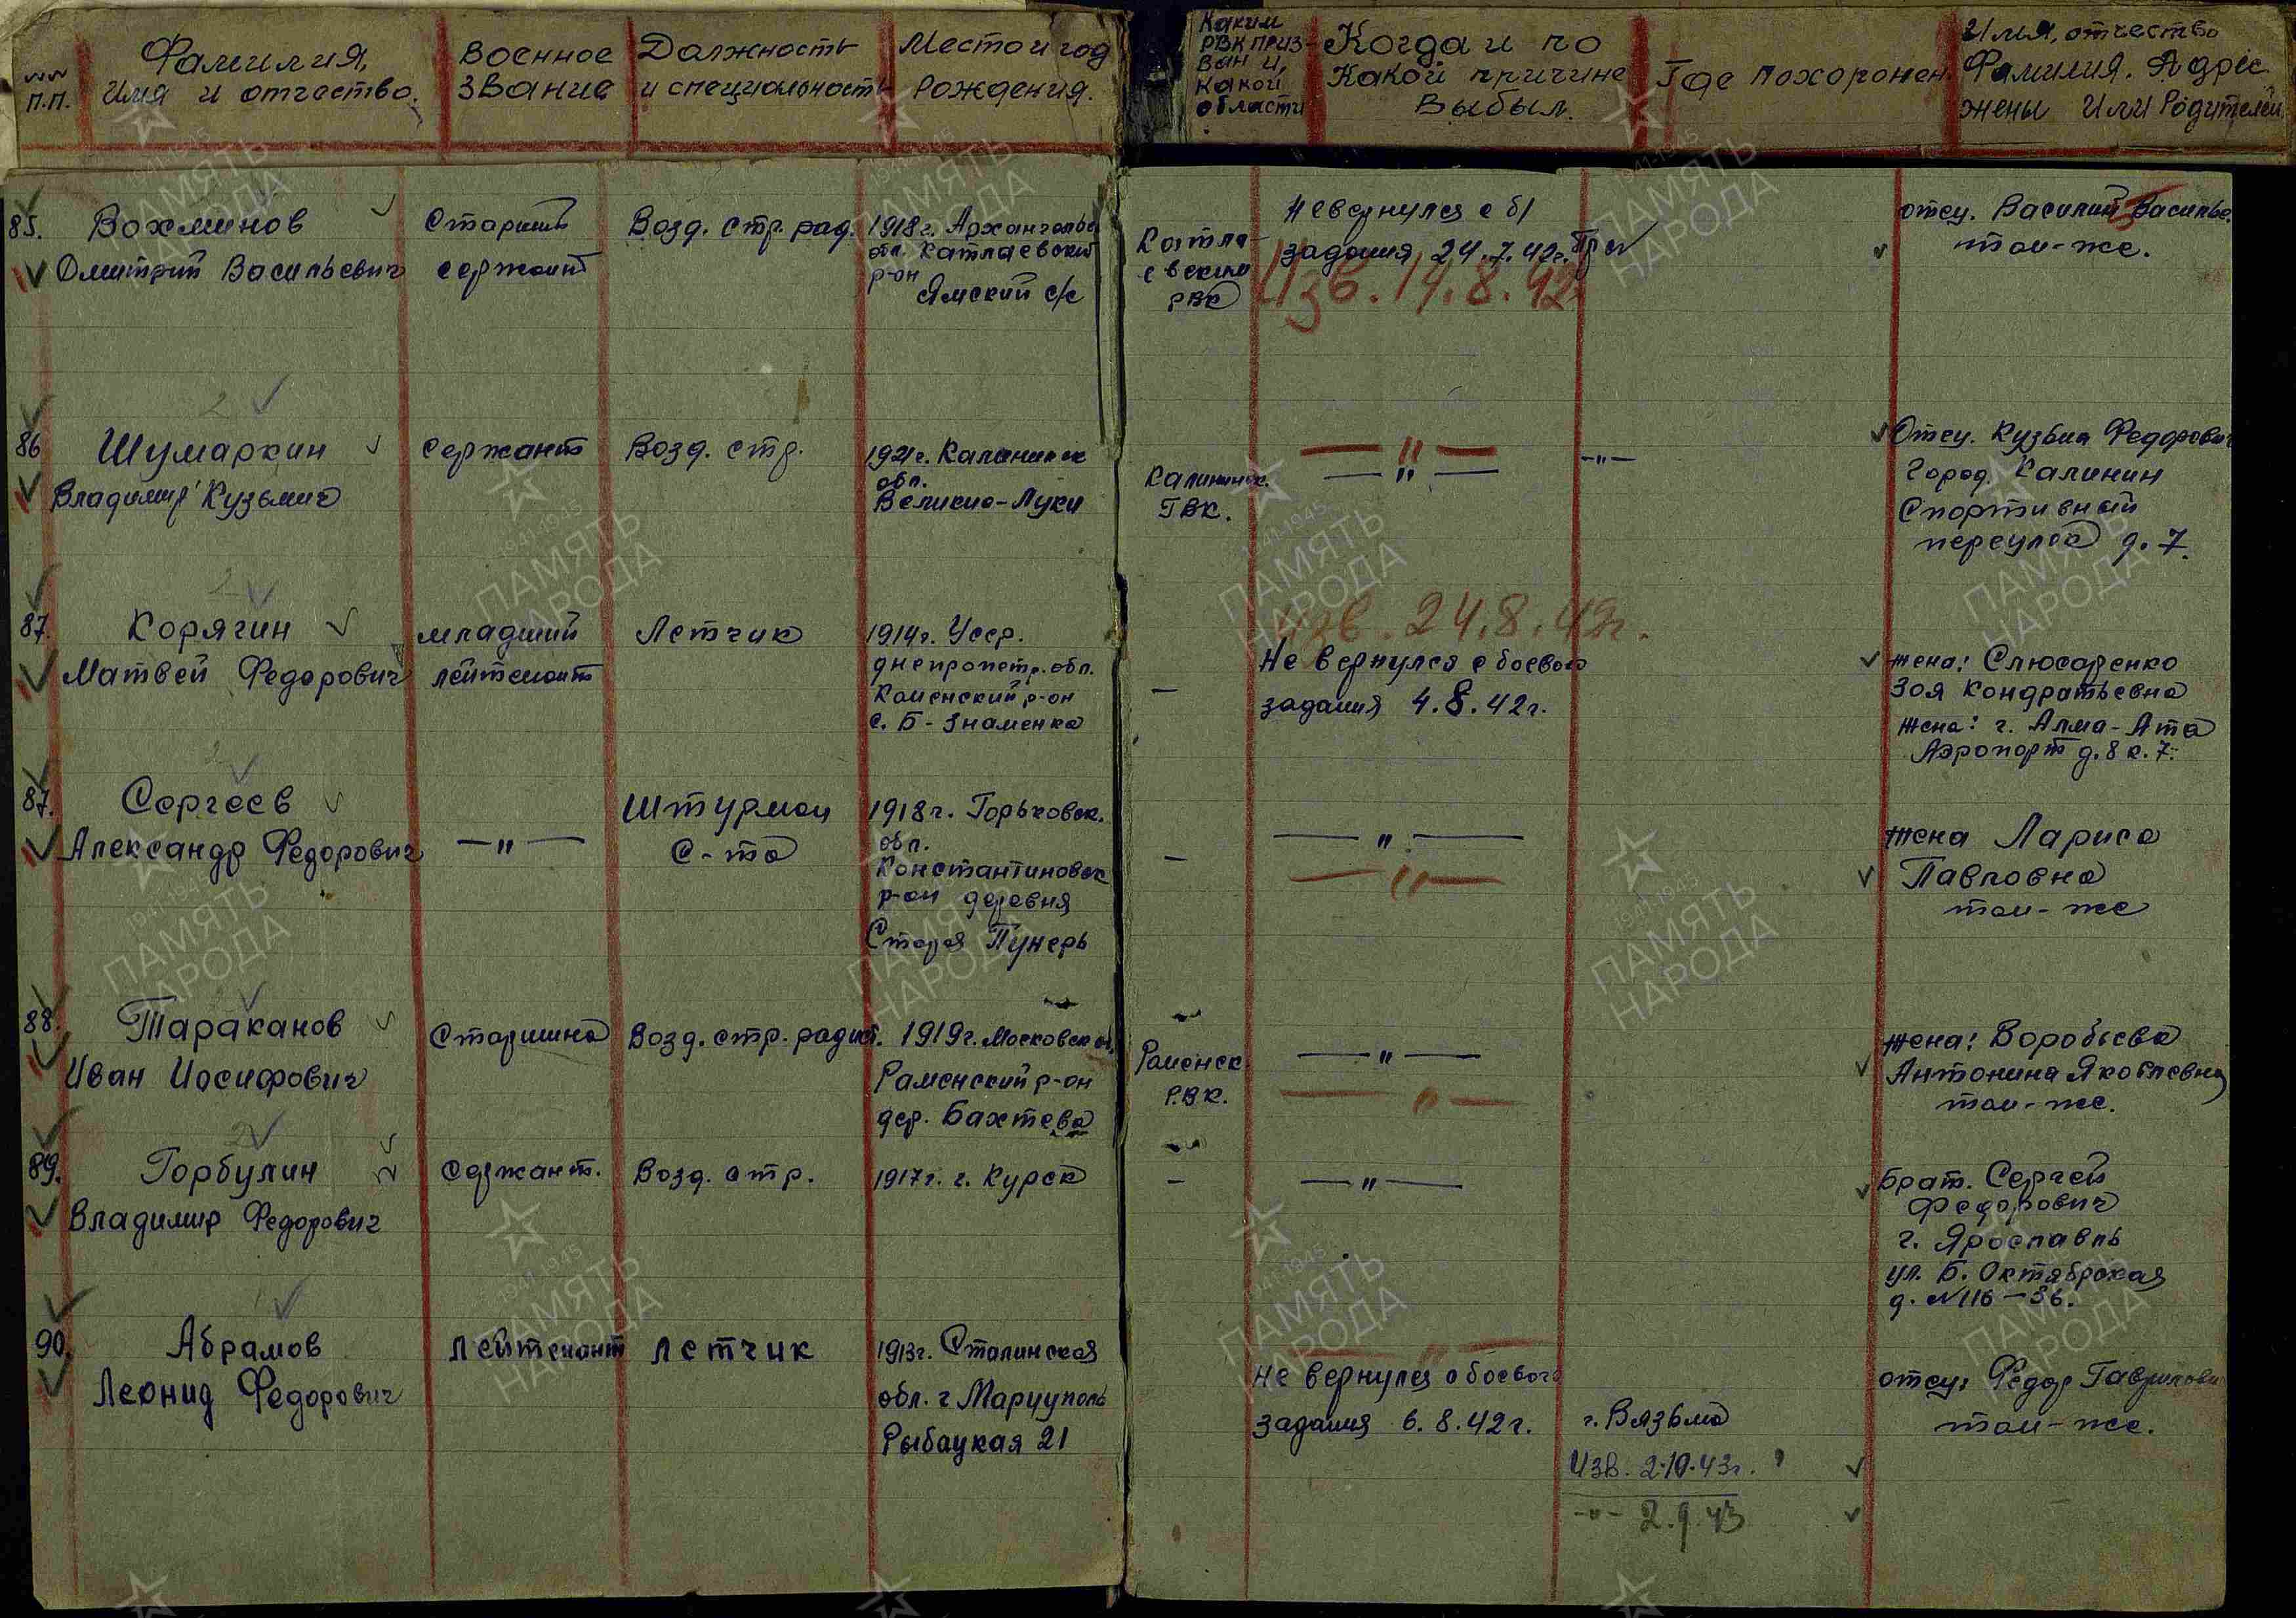 №№ п.п.
Фамилия, Имя и отчество.
Военное звание
Должность и специальность
Место и год рождения.
Каким РВК призван и, какой области
Когда и по какой причине выбыл.
Где похоронен
Имя, отчество Фамилия. Адрес жены или родителей.
85. Вохминов
Дмитрий Васильевич
Старший
сержант
Возд. стр. рад.
1918г. Архангельс
обл. Катлаевский
р-он
Ямский с/с
Катла-
евским
РВК
Невернулся с б/
задания 24.7.42г.
Изв. 14.8.42
отец. Василий Василье.
там-же.
86 Шумаркин
Владимир Кузьмич
Сержант
Возд. стр.
1921г. Калининск
обл.
Великие-Луки
Калининск.
ГВК.
—"—
—"—
—"—
Отец. Кузьма Федорович
Город. Калинин
Спортивный
переулок д. 7.
87. Корягин
Матвей Федорович
младший
лейтенант
Летчик
1914г. Усср.
днепропетр. обл.
Каменский р-он
с. Б-Знаменка
—
изв. 24.8.42г.
Не вернулся с боевого
задания 4.8.42г.
жена: Слюсаренко
Зоя Кондратьевна
жена: г. Алма-Ата
Аэропорт д.8 к.7.
87. Сергеев
Александр Федорович
—"—
Штурман
С-та
1918г. Горьковск.
обл.
Константиновск
р-он деревня
Старая Пунерь
—
—"—
—"—
жена Лариса
Павловна
там-же
88. Тараканов
Иван Иосифович
Старшина
Возд. стр. радист.
1919г. Московск об.
Раменский р-он
дер. Бахтева
Раменск
Р.В.К.
—"—
—"—
жена: Воробьева
Антонина Яковлевна
там-же.
89. Горбулин
Владимир Федорович
Сержант.
Возд. стр.
1917г. г. Курск
—
—"—
Брат. Сергей
Федорович
г. Ярославль
ул. Б. Октябрская
д. №116-36.
90. Абрамов
Леонид Федорович
Лейтенант
летчик
1913г. Сталинская
обл. г Мариуполь
Рыбацкая 21
—"—
не вернулся с боевого
задания 6.8.42г.
г. Вязьма
Изв. 2.10.43г.
-"- 2.9.43
отец: Федор Гаврилови
там-же.
1941-1945
ПАМЯТЬ
НАРОДА